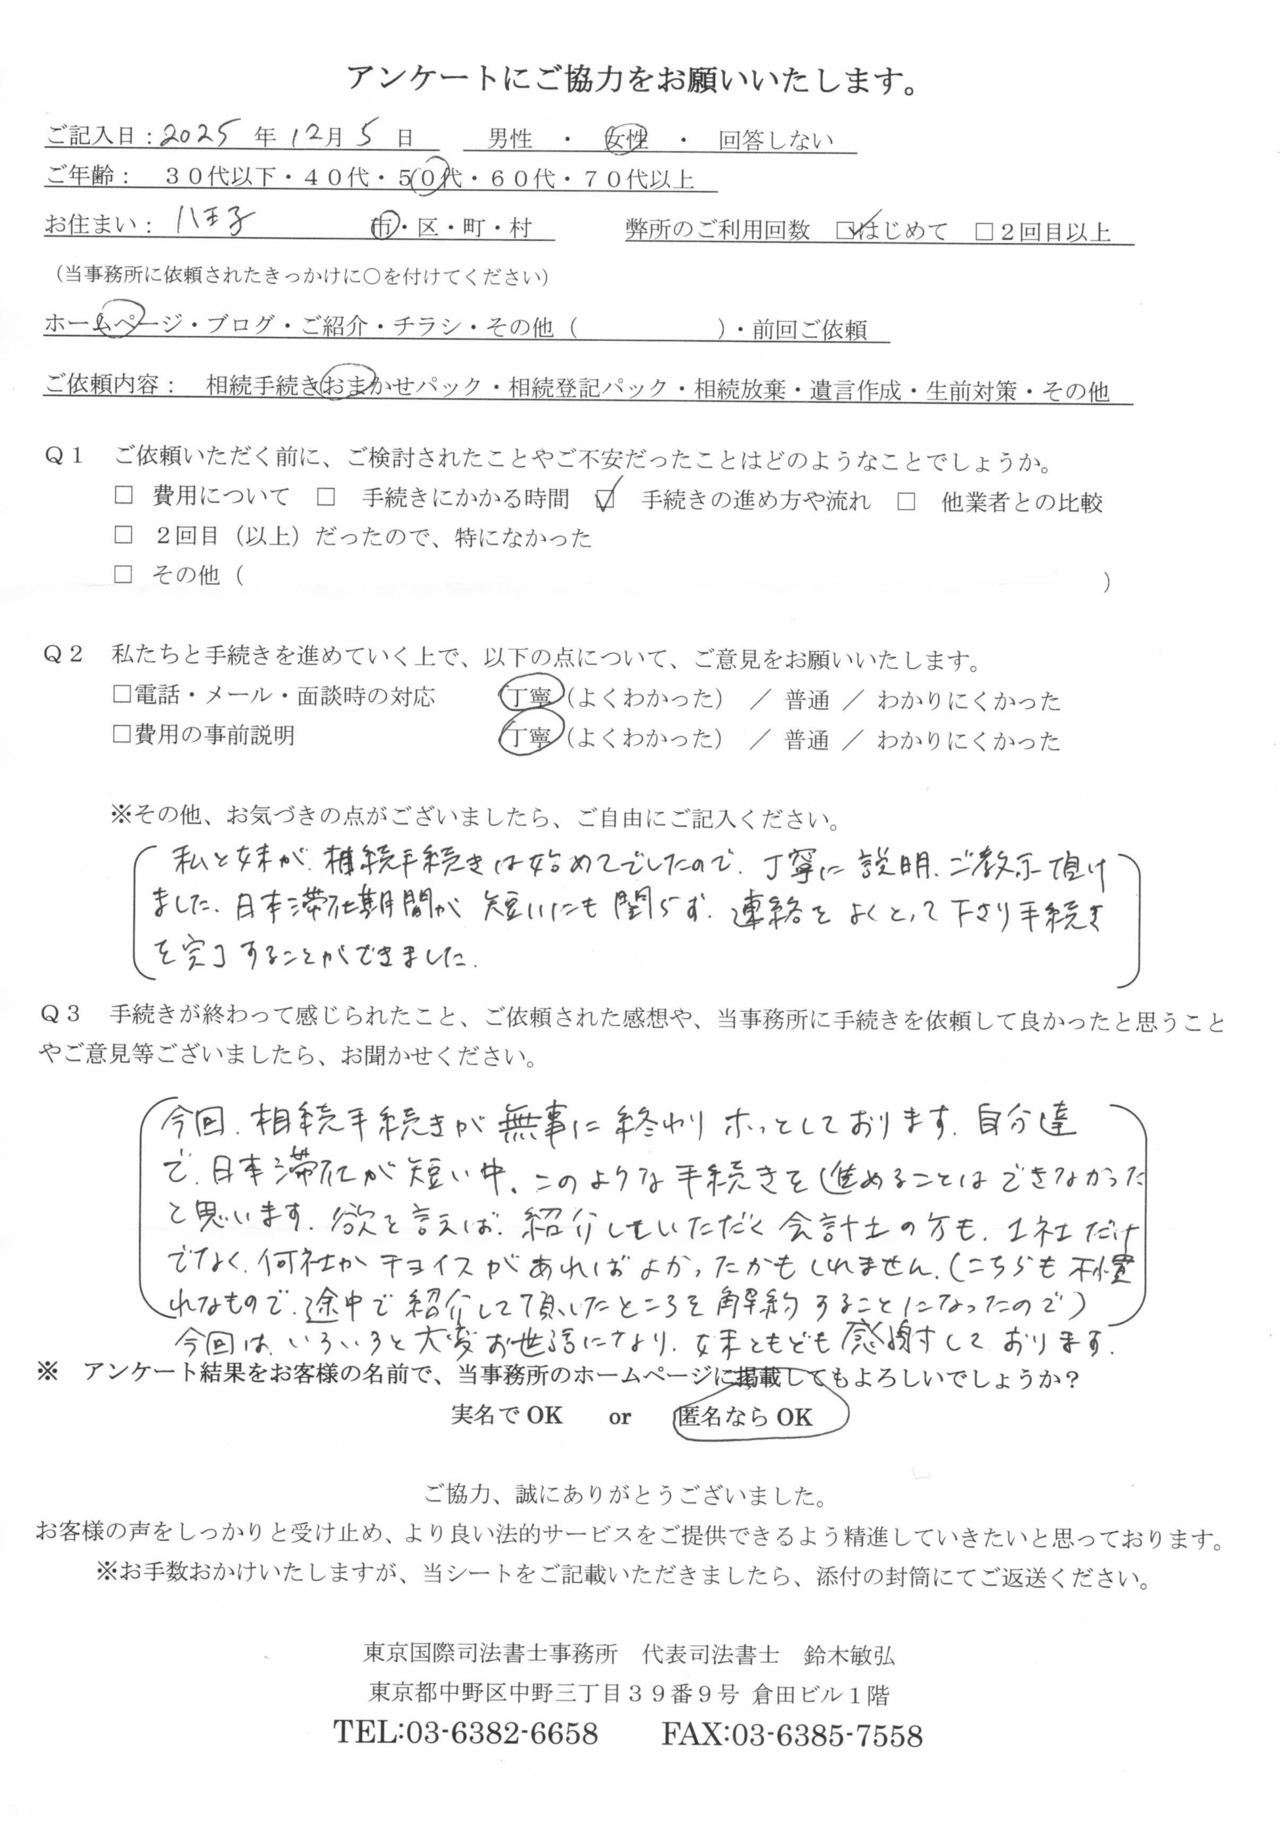 アンケートにご協力をお願いいたします。
ご記入日：2025 年 12月 5 日　男性　・　女性　・　回答しない
ご年齢：　３０代以下・４０代・５０代・６０代・７０代以上
お住まい：八王子　市・区・町・村　弊所のご利用回数　□はじめて　□２回目以上
（当事務所に依頼されたきっかけに○を付けてください）
ホームページ・ブログ・ご紹介・チラシ・その他（　　　　　　）・前回ご依頼
ご依頼内容：　相続手続きおまかせパック・相続登記パック・相続放棄・遺言作成・生前対策・その他
Ｑ１　ご依頼いただく前に、ご検討されたことやご不安だったことはどのようなことでしょうか。
□　費用について　□　手続きにかかる時間　☑　手続きの進め方や流れ　□　他業者との比較
□　２回目（以上）だったので、特になかった
□　その他（　　　　　　　　　　）
Ｑ２　私たちと手続きを進めていく上で、以下の点について、ご意見をお願いいたします。
□電話・メール・面談時の対応　丁寧（よくわかった）　／　普通　／　わかりにくかった
□費用の事前説明　丁寧（よくわかった）　／　普通　／　わかりにくかった
※その他、お気づきの点がございましたら、ご自由にご記入ください。
私と妹が、相続手続きは始めてでしたので、丁寧に説明、ご教示頂け
ました。日本滞在期間が短いにも関らず、連絡をよくとって下さり手続き
を完了することができました。
Ｑ３　手続きが終わって感じられたこと、ご依頼された感想や、当事務所に手続きを依頼して良かったと思うこと
やご意見等ございましたら、お聞かせください。
今回、相続手続きが無事に終わりホッとしております。自分達
で、日本滞在が短い中、このような手続きを進めることはできなかった
と思います。欲を言えば、紹介していただく会計士の方も、1社だけ
でなく、何社かチョイスがあればよかったかもしれません。（こちらも不慣
れなもので、途中で紹介して頂いたところを解約することになったので）
今回は、いろいろと大変お世話になり、妹ともども感謝しております。
※　アンケート結果をお客様の名前で、当事務所のホームページに掲載してもよろしいでしょうか？
実名でOK　or　匿名ならOK
ご協力、誠にありがとうございました。
お客様の声をしっかりと受け止め、より良い法的サービスをご提供できるよう精進していきたいと思っております。
※お手数おかけいたしますが、当シートをご記載いただきましたら、添付の封筒にてご返送ください。
東京国際司法書士事務所　代表司法書士　鈴木敏弘
東京都中野区中野三丁目３９番９号 倉田ビル１階
TEL:03-6382-6658　FAX:03-6385-7558